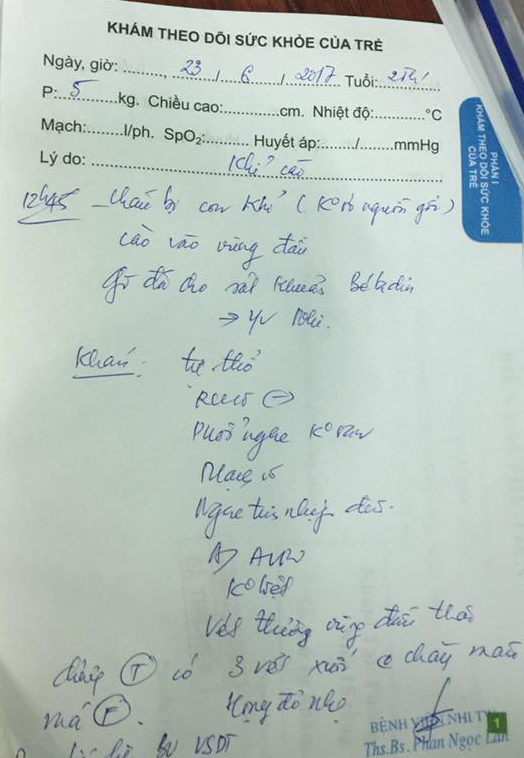 KHÁM THEO DÕI SỨC KHỎE CỦA TRẺ
Ngày, giờ: ........, 23 / 6 / 2017 Tuổi: 2 Th
P: 5 kg. Chiều cao:............cm. Nhiệt độ:............°C
Mạch:........l/ph. SpO₂:............ Huyết áp:......./........mmHg
Lý do: Khỉ cào
PHẦN I
KHÁM THEO DÕI SỨC KHỎE
CỦA TRẺ
12h45 - cháu bị con khỉ (K° rõ nguồn gốc)
cào vào vùng đầu
gđ đã cho sát khuẩn Bêtadin
→ Nhi.
Khám: tự thở
Phổi nghe K° ran
Mạch rõ
Nghe tim nhịp đều.
K° liệt
Vết thương vùng đầu
(T) có 3 vết chảy máu
má (F). Họng đỏ nhẹ
BV
BỆNH VIỆN NHI TW
Ths.Bs. Phan Ngọc Lan
1